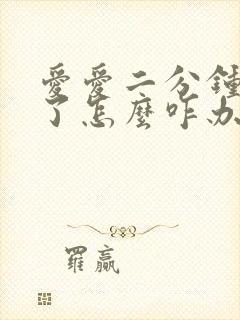 愛愛二分鐘
了怎麼咋办
羅贏